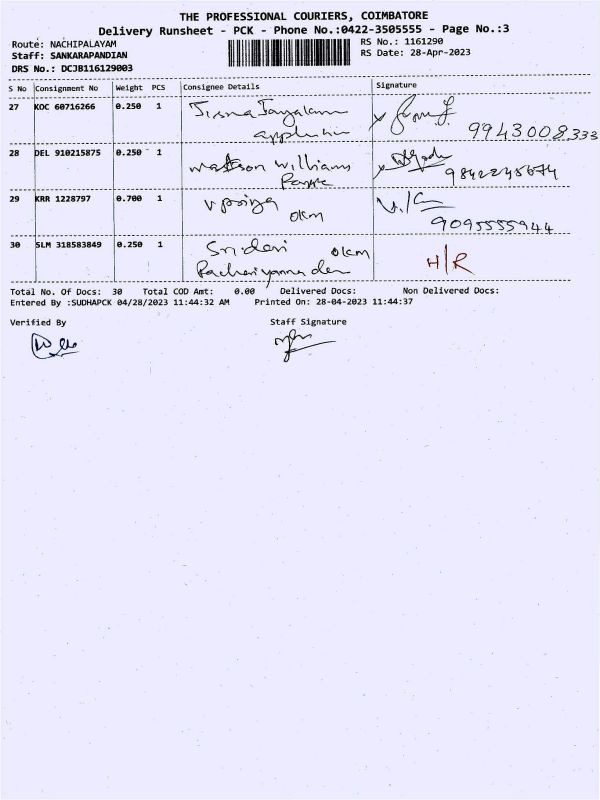 THE PROFESSIONAL COURIERS, COIMBATORE
Delivery Runsheet - PCK - Phone No.:0422-3505555 - Page No.:3
Route: NACHIPALAYAM
RS No.: 1161290
Staff: SANKARAPANDIAN
RS Date: 28-Apr-2023
DRS No.: DCJB116129003
S No Consignment No Weight PCS Consignee Details Signature
27 KOC 60716266 0.250 1
9943008333
28 DEL 910215875 0.250 1 williams
29 KRR 1228797 0.700 1 v priya
okm
9095555944
30 SLM 318583849 0.250 1 Sridevi okm
H/R
Total No. Of Docs: 30 Total COD Amt: 0.00 Delivered Docs: Non Delivered Docs:
Entered By :SUDHAPCK 04/28/2023 11:44:32 AM Printed On: 28-04-2023 11:44:37
Verified By Staff Signature